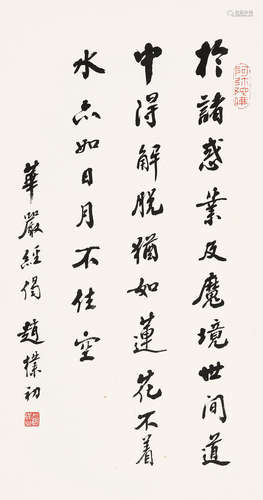 於諸惑業及魔境世間道
中得解脱猶如蓮花不着
水亦如日月不住空
華嚴經偈 趙樸初